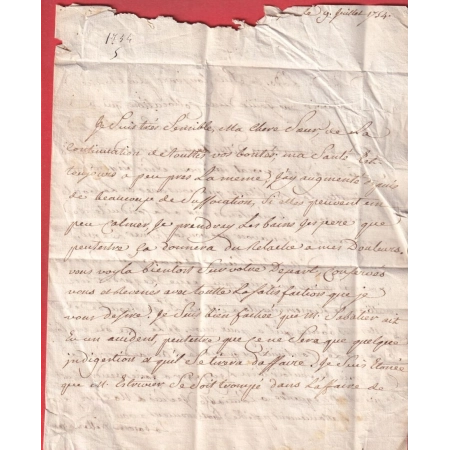 le 9 Juillet 1754.
1754
5
Je Suis très Sensible, Ma Chere Sœur, de La
Continuation de toutte vos bontés, ma Santé Est
toujours a peu près La même J'ay augmenté
de beaucoup de Suffocation, Si Elles peuvent un
peu Calmer, Je prendrey Les bains J'espere que
peutestre Ça donnera du Relache a mes Douleurs,
vous voyla bientost Sur votre Départ, Conservés
vous et Revenés avec toutte La Satisfaction que je
vous désire. Je Suis bien fachée que Mr. Sabatier ait
Eu un accident peutestre que Ce ne Sera que quelque
indigestion a quil Se tirera d'affaire. Je Suis Etonée
que Mr. Se Soit trompé dans L'affaire de